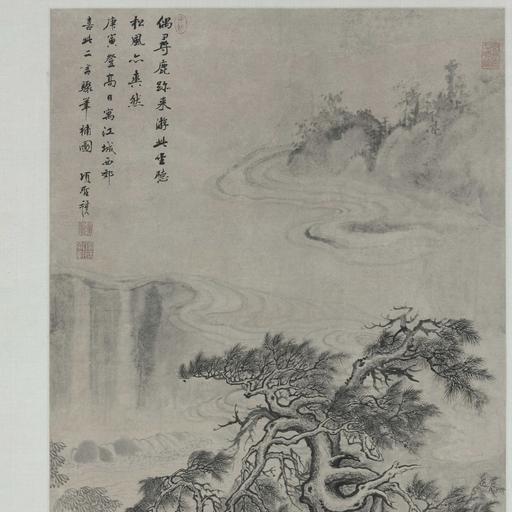 偶尋鹿跡來游此坐聽
松風亦爽然
庚寅登高日寫江城西郊
喜此二言點筆補圖 項聖謨